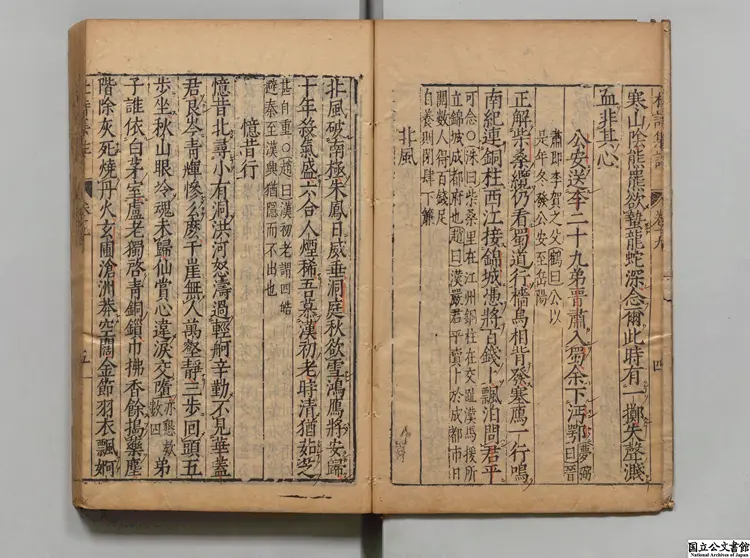 卷九
四
寒山陰熊羆欲蟄龍蛇深念爾此時有一擲失聲濺
血非其心
公安送李二十九弟晉肅入蜀余下沔鄂夢弼曰晉
肅即李賀之父鶴曰公以
是年冬發公安至岳陽
正解柴桑纜仍看蜀道行檣烏相背發塞鴈一行鳴
南紀連銅柱西江接錦城憑將百錢卜飄泊問君平
可念○泳曰柴桑里在江州銅柱在交趾漢馬援所
立錦城成都府也趙曰漢嚴君平賣卜於成都市日
閱數人得百錢足
自養則閉肆下簾
北風
北風破南極朱鳳日威垂洞庭秋欲雪鴻鴈將安歸
十年殺氣盛六合人煙稀吾慕漢初老時清猶茹芝
甚自重○趙曰漢初老謂四皓
避秦至漢興猶隱而不出也
憶昔行
憶昔北尋小有洞洪河怒濤過輕舸辛勤不見華蓋
君艮岑青輝慘么麽千崖無人萬壑靜三步回頭五
步坐秋山眼冷魂未歸仙賞心違淚交墮亦懇款數四弟
子誰依白茅室盧老獨啓青銅鎖巾拂香餘搗藥塵
階除灰死燒丹火玄圃滄洲莽空闊金節羽衣飄婀
五
国立公文書館
National Archives of Japan